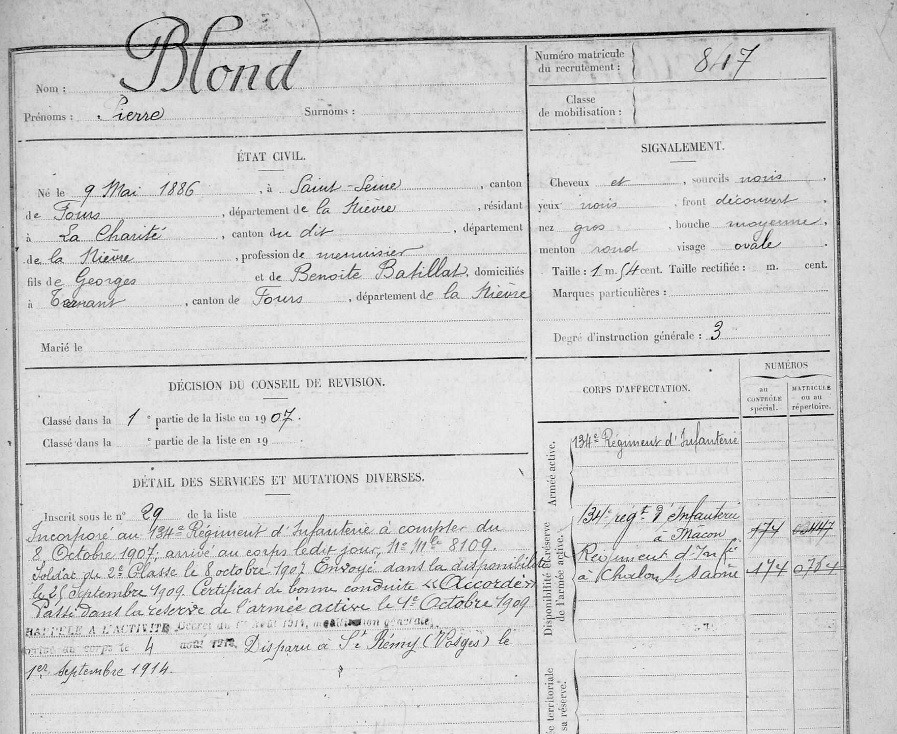 Nom : Blond
Prénoms : Pierre Surnoms :
ÉTAT CIVIL.
Né le 9 Mai 1886, à Saint-Seine, canton
de Fours, département de la Nièvre, résidant
à La Charité, canton du dit, département
de la Nièvre, profession de menuisier
fils de Georges et de Benoite Batillat, domiciliés
à Ternant, canton de Fours, département de la Nièvre
Marié le
DÉCISION DU CONSEIL DE REVISION.
Classé dans la 1e partie de la liste en 1907.
Classé dans la e partie de la liste en 19
DÉTAIL DES SERVICES ET MUTATIONS DIVERSES.
Inscrit sous le n° 29 de la liste
Incorporé au 134e Régiment d'Infanterie à compter du
8 Octobre 1907; arrivé au corps le dit jour, No Mle 8109.
Soldat de 2e Classe le 8 octobre 1907 Envoyé dans la disponibilité
le 25 Septembre 1909. Certificat de bonne conduite "Accordé"
Passé dans la réserve de l'armée active le 1er Octobre 1909
RAPPELÉ A L'ACTIVITÉ Décret du 1er Août 1914, mobilisation générale,
arrivé au corps le 4 août 1914. Disparu à St Rémy (Vosges) le
1er Septembre 1914.
Numéro matricule du recrutement : 817
Classe de mobilisation :
SIGNALEMENT.
Cheveux et, sourcils noirs,
yeux noirs, front découvert
nez gros, bouche moyenne,
menton rond visage ovale.
Taille : 1 m. 54 cent. Taille rectifiée : m. cent.
Marques particulières :
Degré d'instruction générale : 3
CORPS D'AFFECTATION.
NUMÉROS
au CONTRÔLE spécial.
MATRICULE ou au répertoire.
Armée active.
134e Régiment d'Infanterie
Disponibilité et réserve de l'armée active.
134e regt d'Infanterie
à Macon 174
Régiment d'Infie
à Chalon s/ Saône 174
e territoriale
sa réserve.